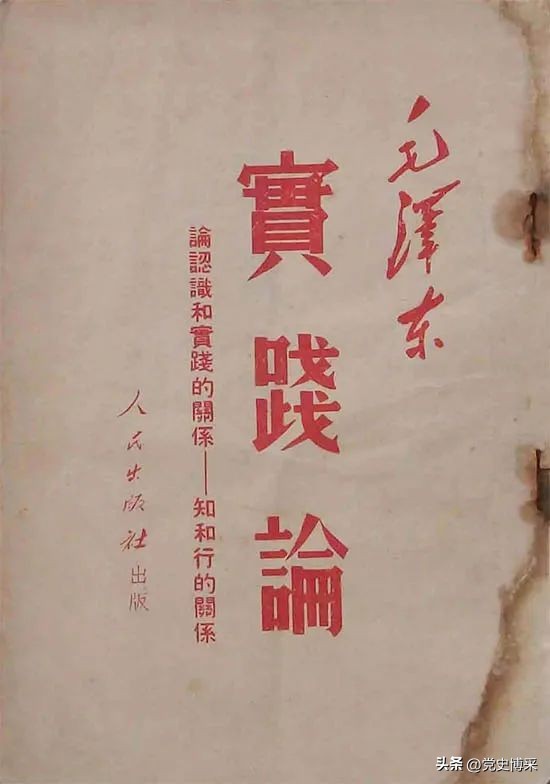 毛澤东
實踐論
論認識和實踐的關係——知和行的關係
人民出版社出版
头条 @党史博采